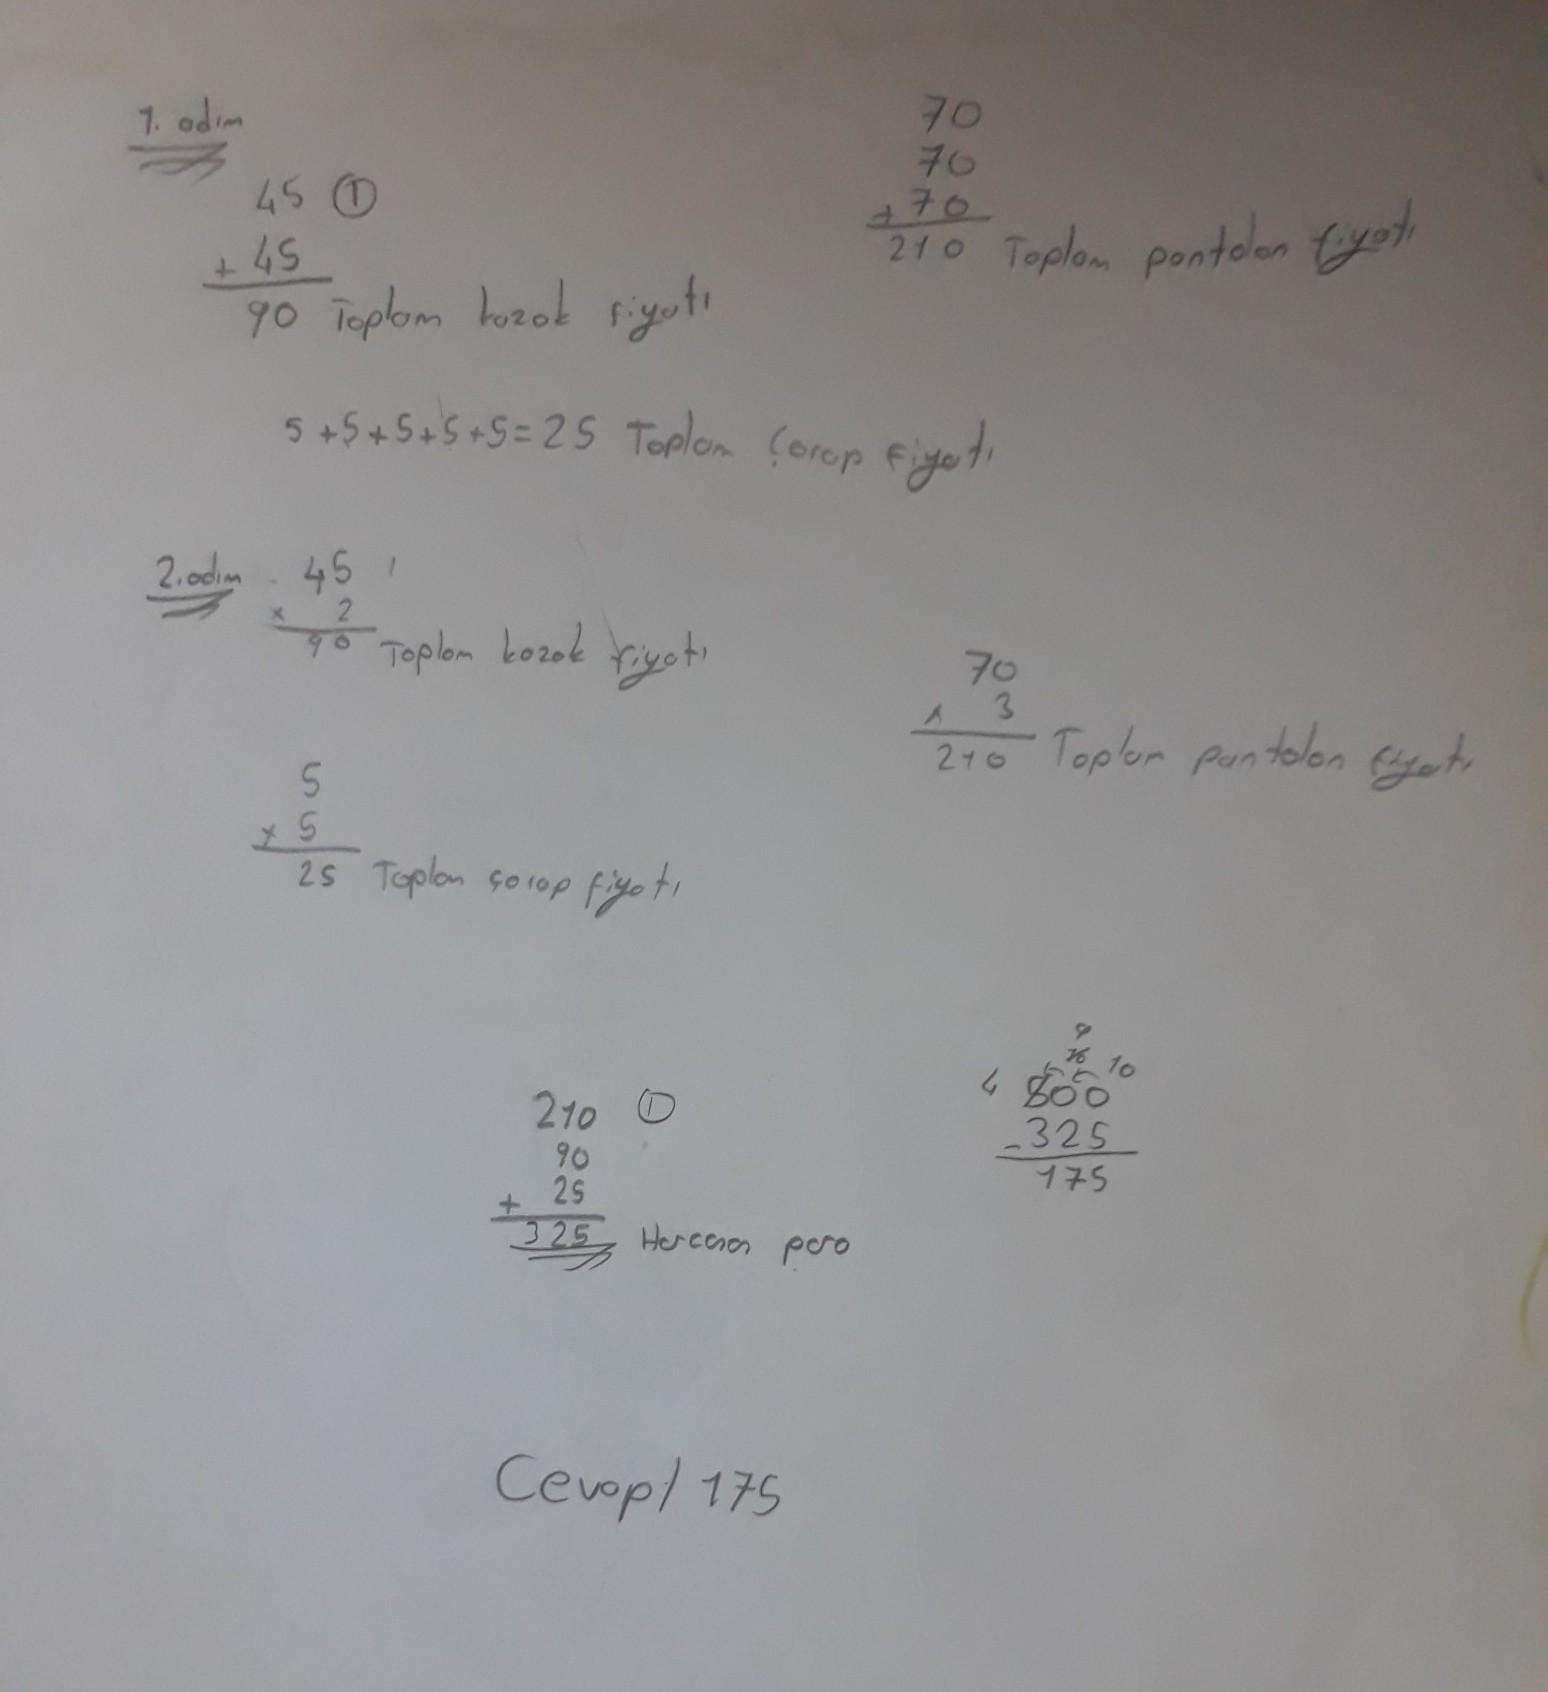 1. adım
45 ①
+ 45
90 Toplam kazak fiyatı
70
70
+ 70
210 Toplam pantolon fiyatı
5+5+5+5+5=25 Toplam Çorap fiyatı
2. adım
45 1
x 2
90 Toplam kazak fiyatı
70
x 3
210 Toplam pantolon fiyatı
5
x 5
25 Toplam çorap fiyatı
210 ①
90
+ 25
325 Harcanan para
9
10 10
4 500
- 325
175
Cevap/ 175